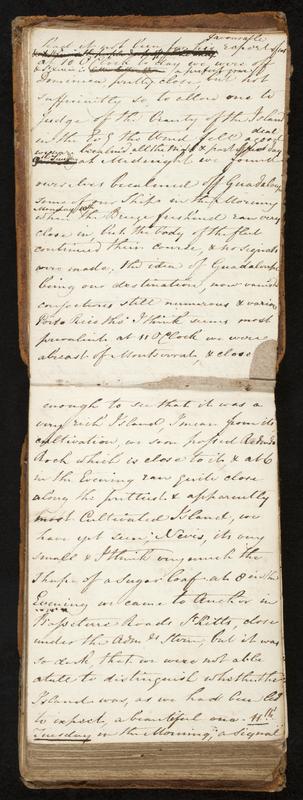 favourable
at 10 O'Clock to day we were off
Dominica pretty close, but not
sufficiently so, to allow one to
judge of the beauty of the Island
in the the Wind fell a good deal
becalmed all the night & part of day
at Midnight we found
ourselves becalmed off Guadaloupe
some of our Ships in the Morning
when the Breeze freshend ran very
close in but the body of the fleet
continued their course, & no signals
were made, the idea of Guadaloupe
being our destination, now vanish
conjectures still numerous & various
Porto Rico tho' I think seems most
prevalent at 11 O'Clock we were
abreast of Montserrat, & close
enough to see that it was a
very rich Island, I mean from its
cultivation, we soon passed Redondo
Rock which is close to it, & at 6
in the Evening ran quite close
along the prettiest & apparently
most Cultivated Island, we
have yet seen, Nevis, its very
small & I think very much the
shape of a Sugar loaf at 8 in the
Evening we came to Anchor in
Basseterre Roads St Kitts, close
under the Adm.ls Stern, but it was
so dark, that we were not able
atall to distinguish whether the
Island was, as we had been led
to expect, a beautiful one. 11th
Tuesday in the Morning, a signal